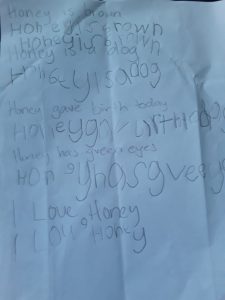 Honey is brown
Honey is brown
Honey is brown
Honey is a dog
Honey is a dog
Honey gave birth today
Honey
Honey has green eyes
Honey has green ey
I Love Honey
I Love Honey